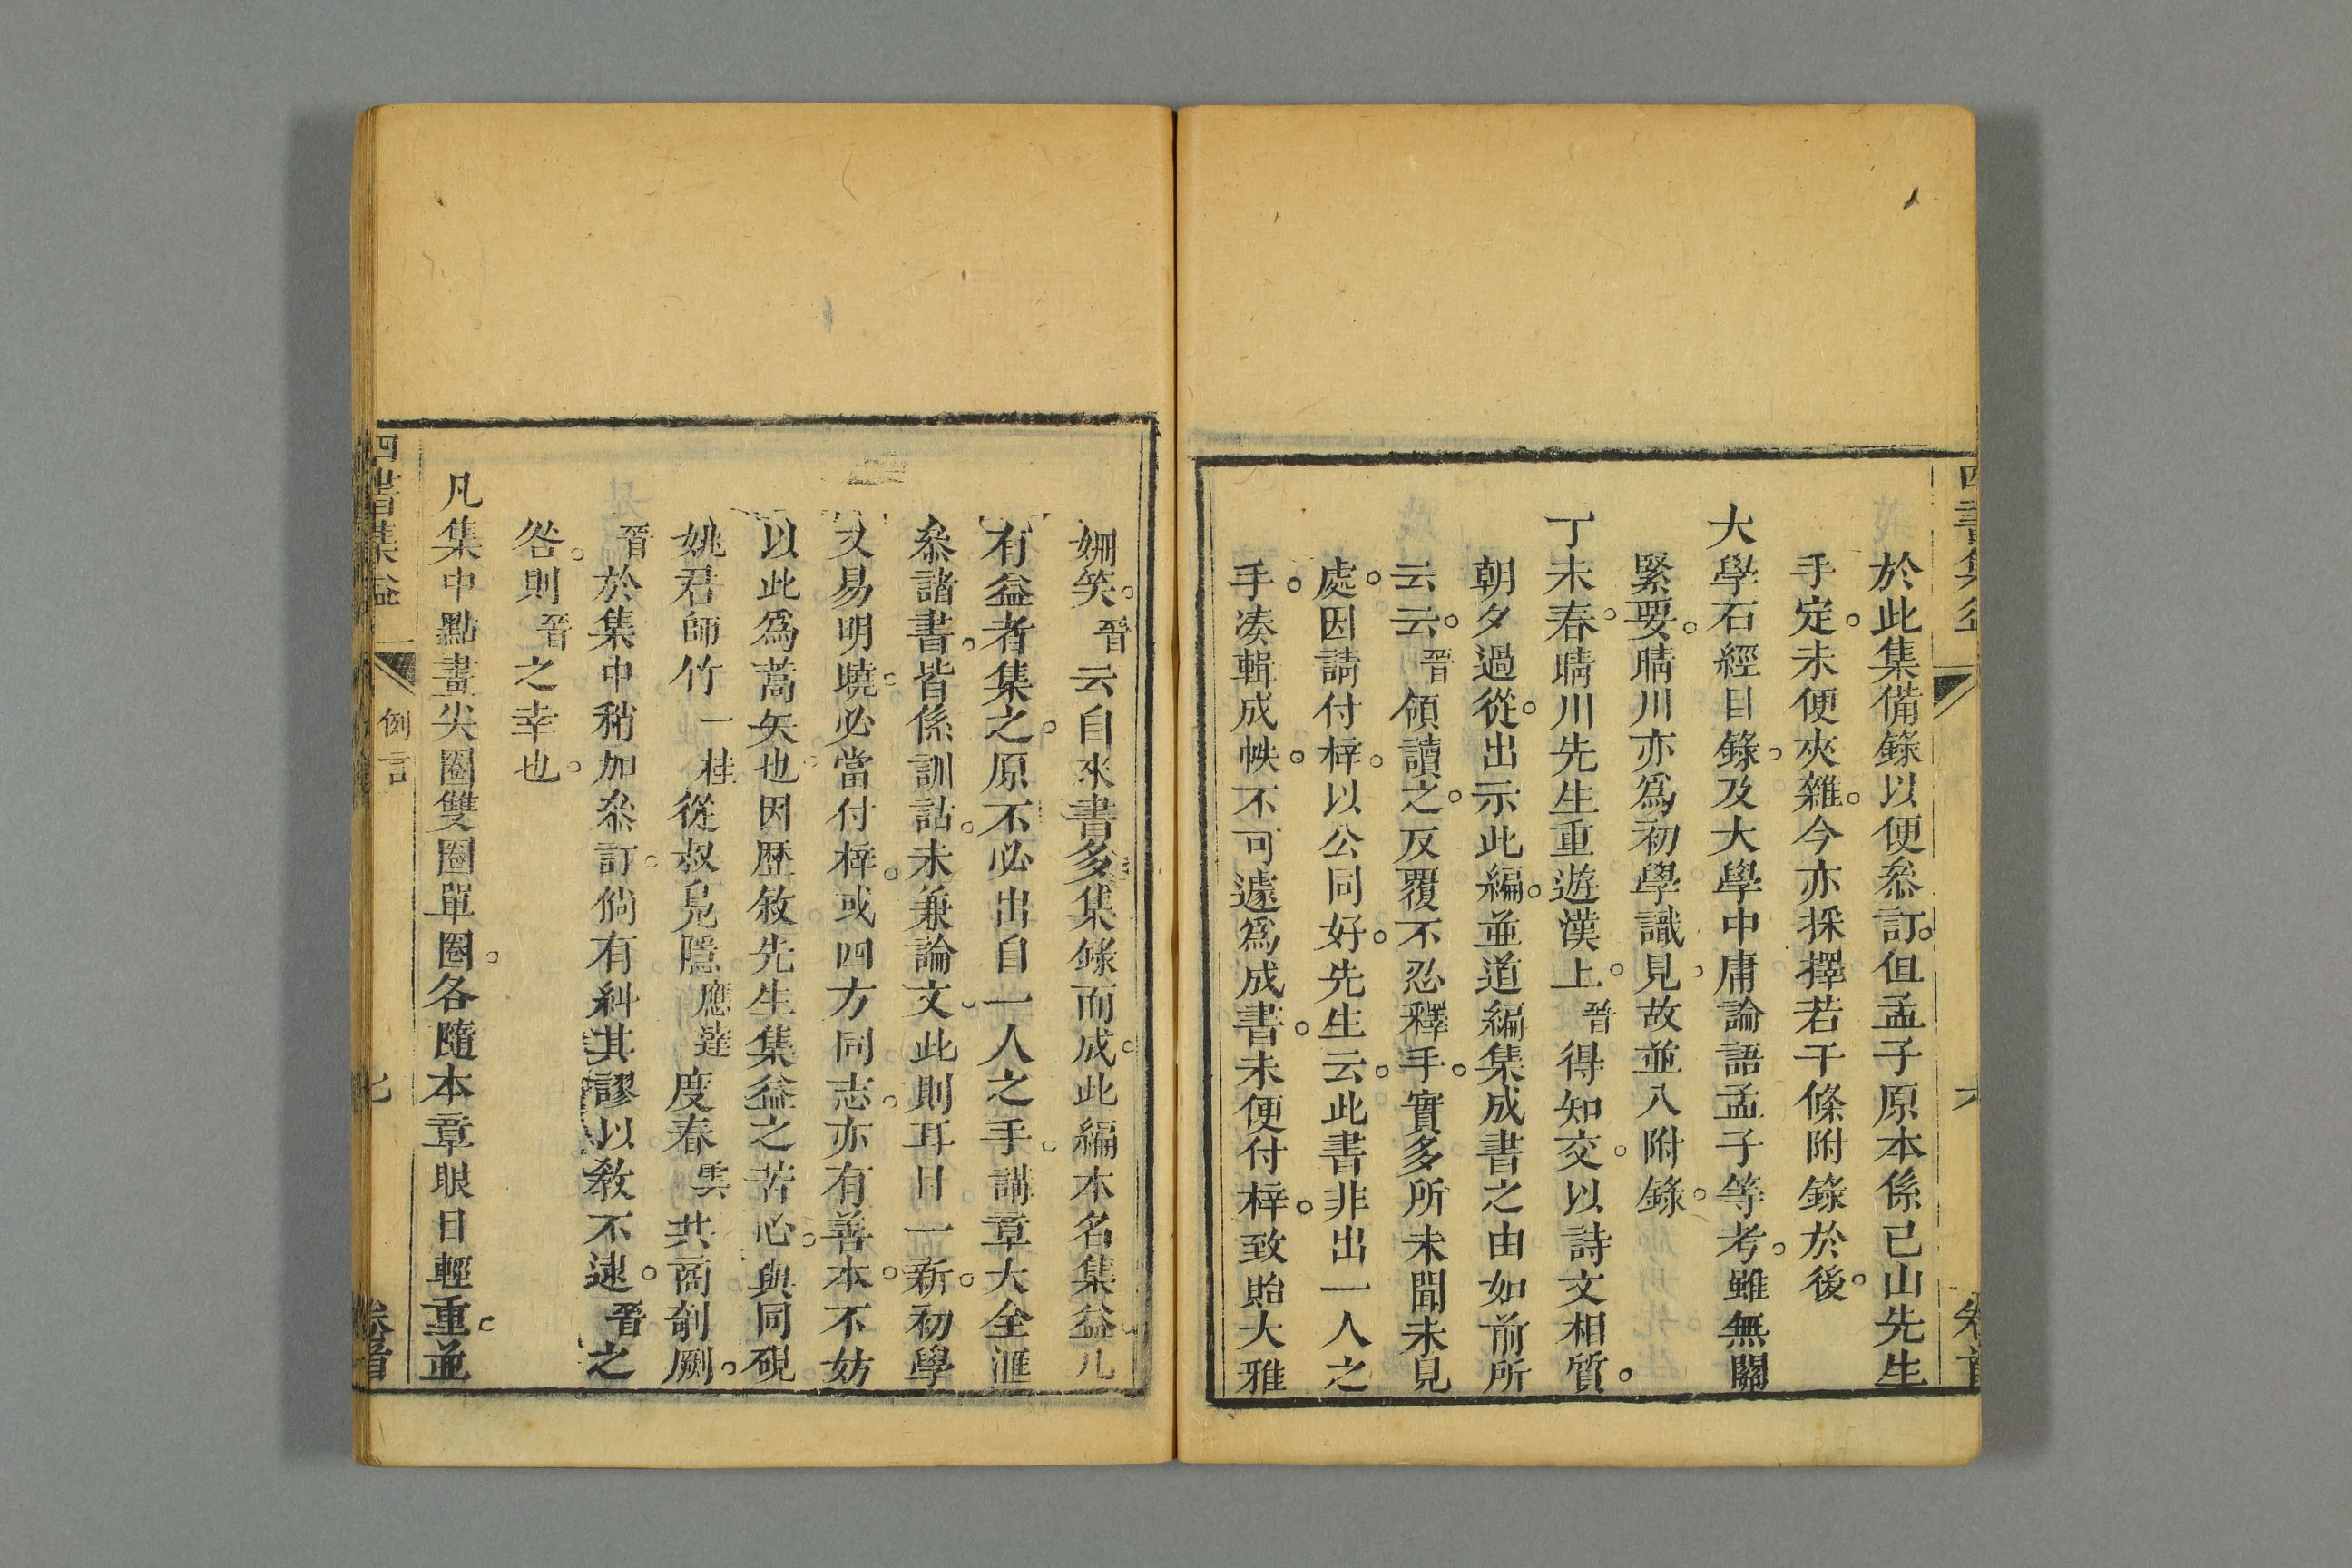 於此集備錄以便叅訂。但孟子原本係己山先生
手定。未便夾雜。今亦採擇若干條附錄於後。
大學石經目錄。及大學中庸論語孟子等考。雖無關
緊要。晴川亦爲初學識見故並入附錄。
丁未春。晴川先生重遊漢上。晉得知交。以詩文相質。
朝夕過從。出示此編。並道編集成書之由如前所
云云。晉領讀之。反覆不忍釋手。實多所未聞未見
處。因請付梓。以公同好。先生云。此書非出一人之
手。凑輯成帙。不可遽爲成書。未便付梓。致貽大雅
姍笑。晉云自來書多集錄而成。此編本名集益。凡
有益者集之。原不必出自一人之手。講章大全滙
叅諸書。皆係訓詁。未兼論文。此則耳目一新。初學
文易明曉。必當付梓。或四方同志。亦有善本。不妨
以此爲蒿矢也。因歷敘先生集益之苦心。與同硯
姚君師竹一桂從叔鳧隱應達度春雲共商剞劂。
晉於集中稍加叅訂。倘有糾其謬以教不逮。晉之
咎。則晉之幸也。
凡集中點畫尖圈雙圈單圈。各隨本章眼目輕重。並
四書集益
例言
七
卷首